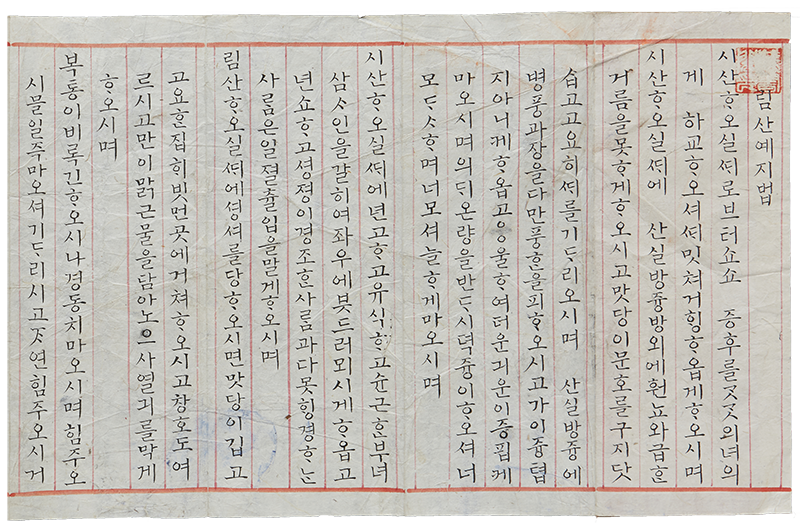 림산예지법
시산ᄒᆞ오실ᄯᅢ로브터쇼쇼 증후를ᄌᆞᄌᆞ의녀의
게 하교ᄒᆞ오셔ᄯᅢ밋쳐거ᄒᆡᆼᄒᆞ옵게ᄒᆞ오시며
시산ᄒᆞ오실ᄯᅢ에 산실방즁방외에훤뇨와급ᄒᆞᆫ
거름을못ᄒᆞ게ᄒᆞ오시고맛당이문호를구지닷
습고고요히ᄯᅢ를기ᄃᆞ리오시며 산실방즁에
병풍과장을다만풍ᄒᆞᆫ을피ᄒᆞ오시고가이즁텹
지아니케ᄒᆞ옵고응울ᄒᆞ여더운긔운이증핍게
마오시며의ᄃᆡ온량을반ᄃᆞ시덕즁이ᄒᆞ오셔너
모ᄃᆞᄉᆞᄒᆞ며너모셔늘ᄒᆞ게마오시며
시산ᄒᆞ오실ᄯᅢ에년고ᄒᆞ고유식ᄒᆞ고슌근ᄒᆞᆫ부녀
삼ᄉᆞ인을ᄀᆞᆯ히여좌우에븟드러뫼시게ᄒᆞ옵고
년쇼ᄒᆞ고셩졍이경조ᄒᆞᆫ사ᄅᆞᆷ과다못ᄒᆡᆼ경ᄒᆞᄂᆞᆫ
사ᄅᆞᆷ은일졀츌입을말게ᄒᆞ오시며
림산ᄒᆞ오실ᄯᅢ에셩셔를당ᄒᆞ오시면맛당이깁고
고요ᄒᆞᆫ집ᄒᆡ빗먼곳에거쳐ᄒᆞ오시고창호도여
르시고만이맑근물을담아노으사열긔를막게
ᄒᆞ오시며
복통이비록긴ᄒᆞ오시나경동치마오시며힘주오
시믈일주마오셔기ᄃᆞ리시고ᄌᆞ연힘주오시거